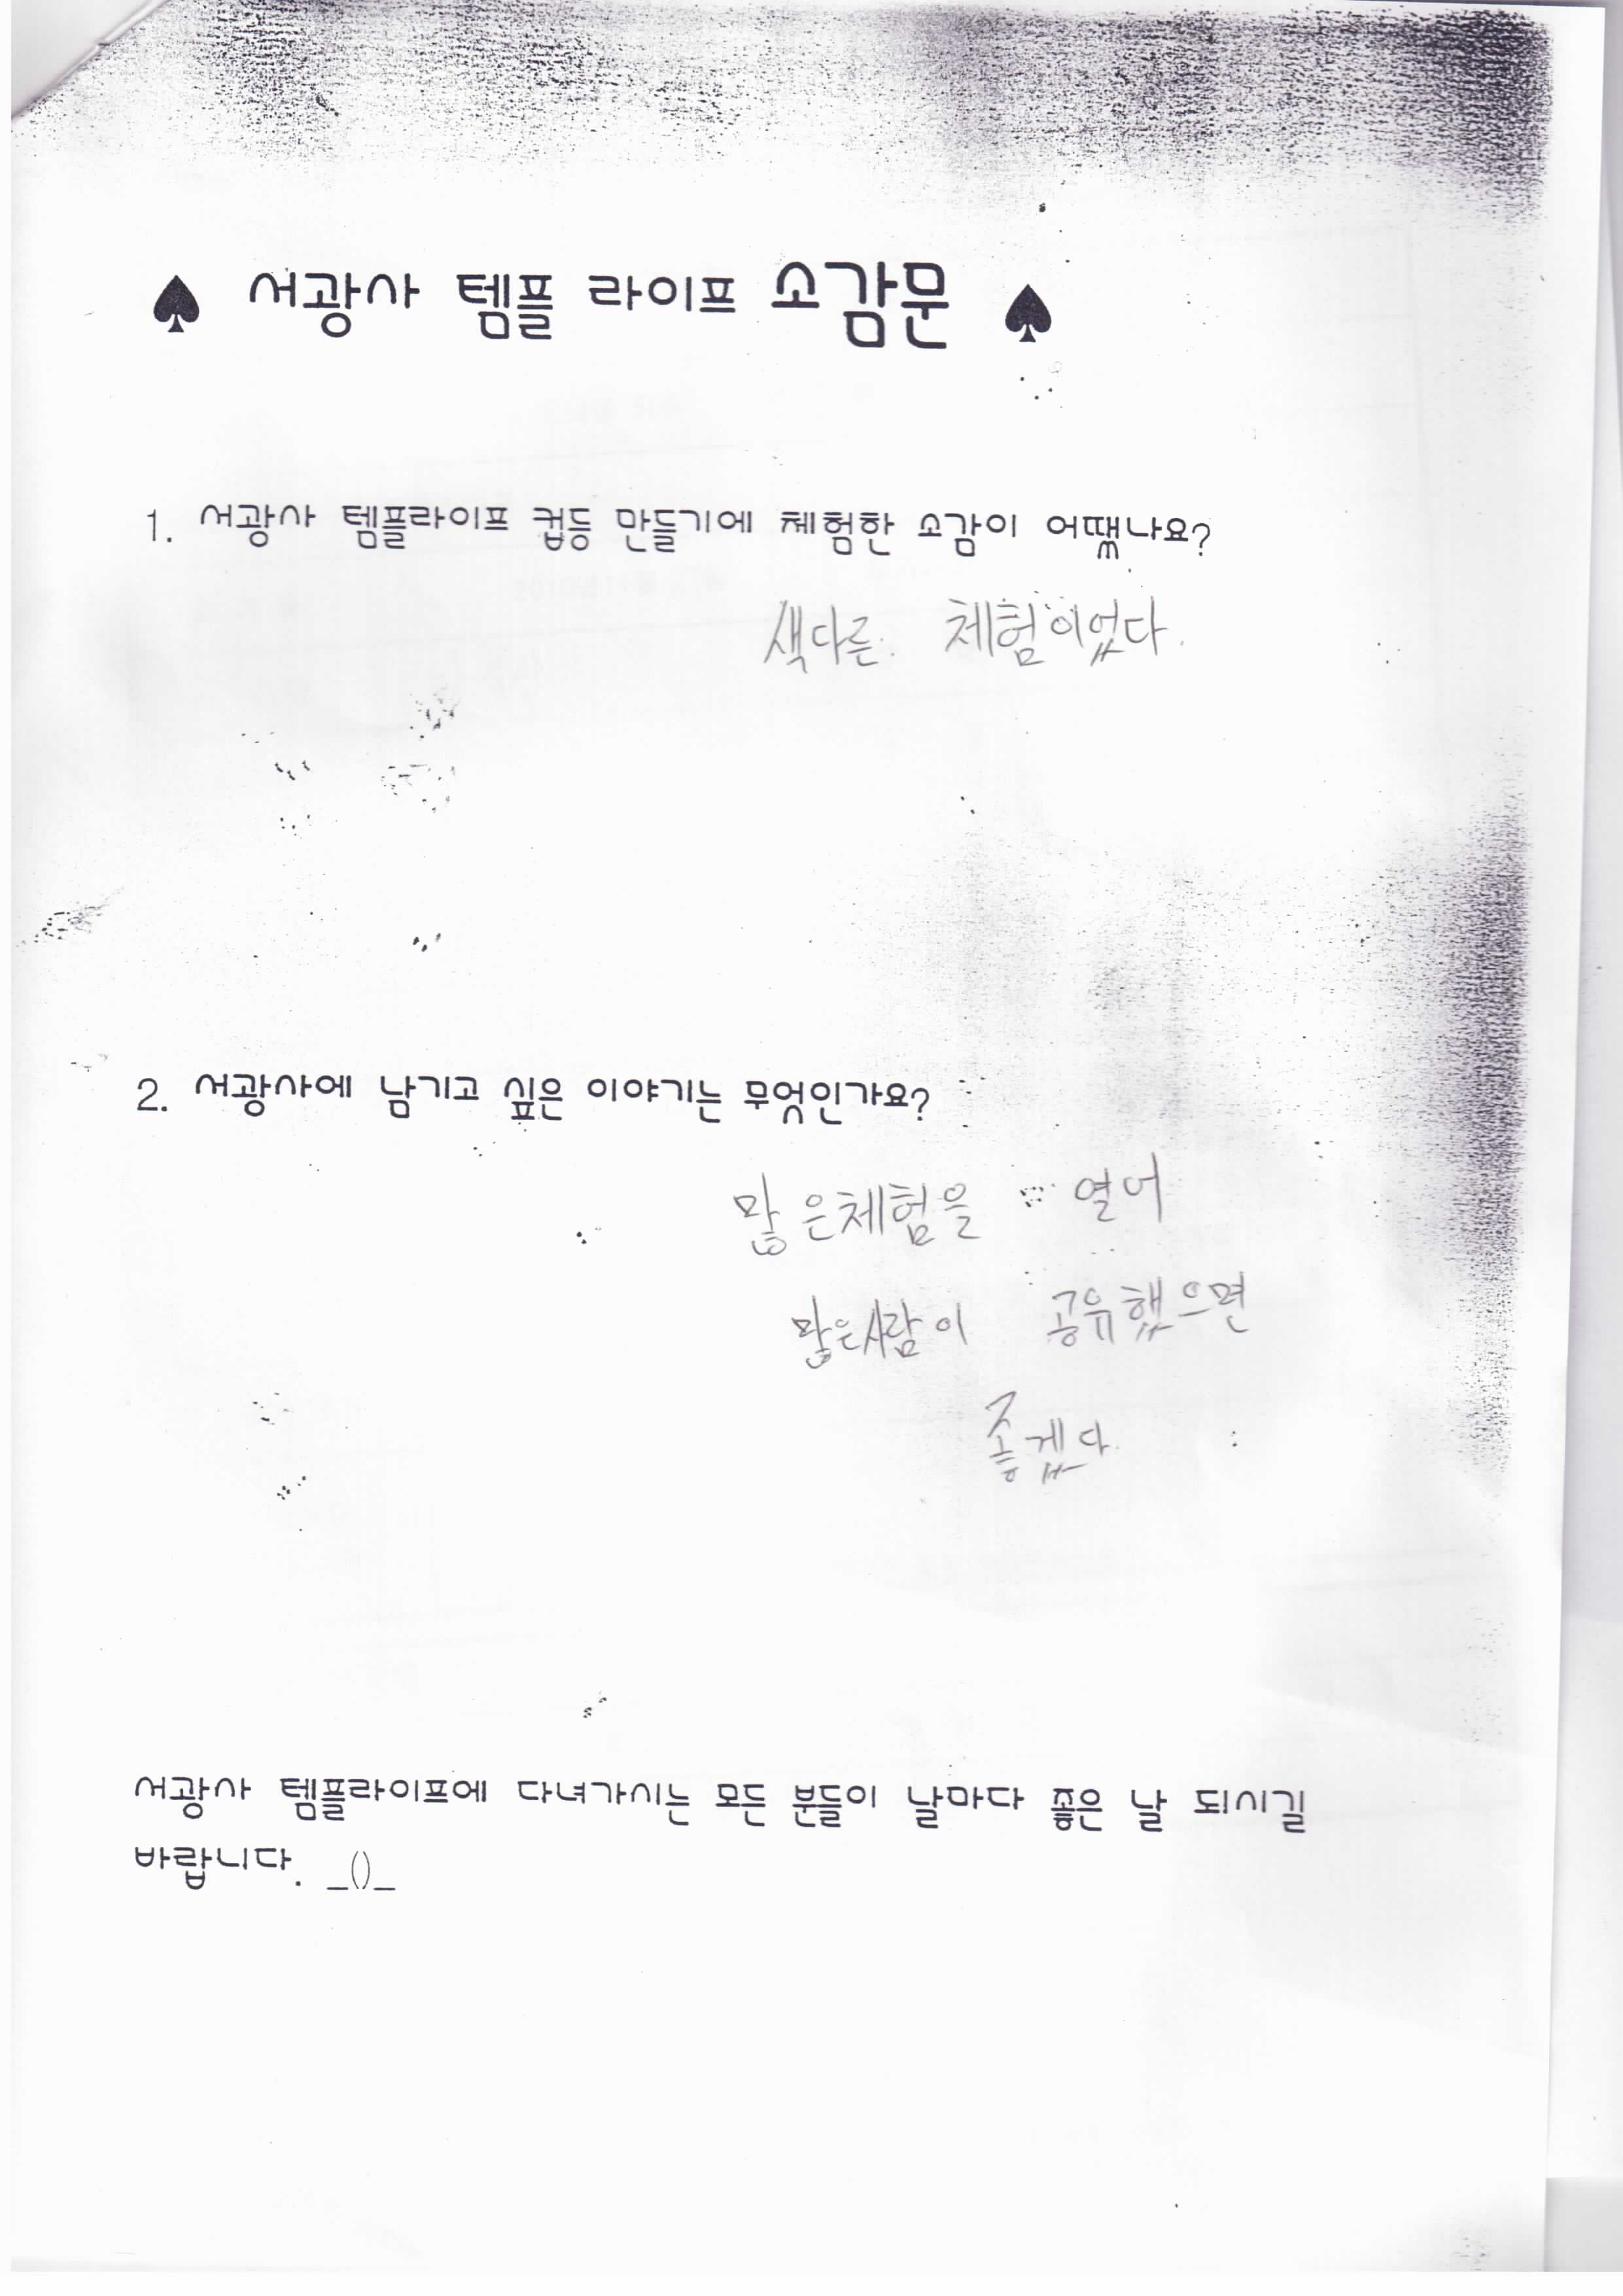 ♠ 서광사 템플 라이프 소감문 ♠
1. 서광사 템플라이프 컵등 만들기에 체험한 소감이 어땠나요?
색다른 체험이었다.
2. 서광사에 남기고 싶은 이야기는 무엇인가요?
많은체험을 열어
많은사람이 공유했으면
좋겠다
서광사 템플라이프에 다녀가시는 모든 분들이 날마다 좋은 날 되시길
바랍니다. _()_